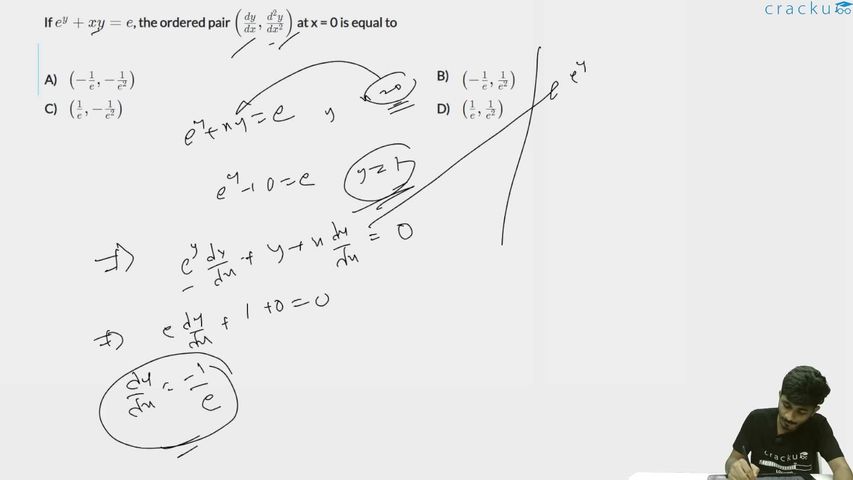 cracku
If e^y + xy = e, the ordered pair (dy/dx, d²y/dx²) at x = 0 is equal to
A) (−1/e, −1/e²)
B) (−1/e, 1/e²)
C) (1/e, −1/e²)
D) (1/e, 1/e²)
e^y + xy = e y x=0
e^y + 0 = e y = 1
⇒ e^y dy/dx + y + x dy/dx = 0
⇒ e dy/dx + 1 + 0 = 0
dy/dx = −1/e
e^y
cracku